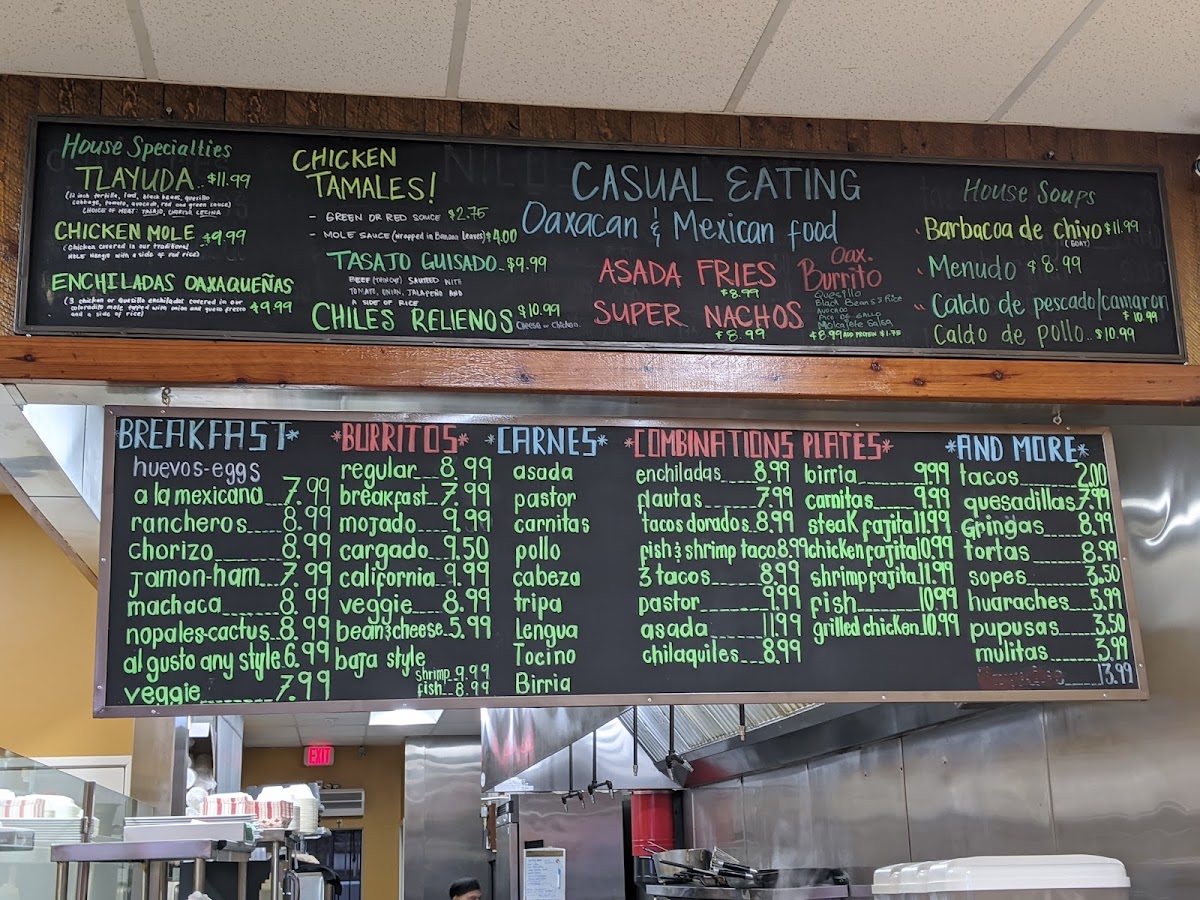 House Specialties
TLAYUDA.. $11.99
(12 inch tortilla, lard, black beans, quesillo
cabbage, tomato, avocado, red and green sauce)
(CHOICE OF MEAT: TASAJO, CHORIZO, CECINA
CHICKEN MOLE $9.99
(Chicken covered in our traditional
MOLE Negro with a side of red rice)
ENCHILADAS OAXAQUEÑAS
(3 chicken or Quesillo enchiladas covered in our
coloradito mole topped with onion and queso fresco
and a side of rice) $9.99
CHICKEN
TAMALES!
- GREEN OR RED SAUCE $2.75
- MOLE SAUCE (wrapped in Banana Leaves) $4.00
TASAJO GUISADO.. $9.99
BEEF (TENDER) SAUTEED WITH
TOMATO, ONION, JALAPEÑO AND
A SIDE OF RICE
CHILES RELIENOS $10.99
Cheese or Chicken.
CASUAL EATING
Oaxacan & Mexican food
ASADA FRIES
$8.99
SUPER NACHOS
$8.99
Oax.
Burrito
Quesillo
Black Beans & Rice
AVOCADO
PICO DE GALLO
Molcajete Salsa
$8.99 ADD PROTEIN $1.75
House Soups
Barbacoa de chivo $11.99
(GOAT)
Menudo $8.99
Caldo de pescado/camaron
$10.99
Caldo de pollo.. $10.99
BREAKFAST*
huevos-eggs
a la mexicana 7.99
rancheros 8.99
chorizo 8.99
jamon-ham 7.99
machaca 8.99
nopales-cactus 8.99
al gusto any style 6.99
veggie 7.99
*BURRITOS*
regular 8.99
breakfast 7.99
mojado 9.99
cargado 9.50
california 9.99
veggie 8.99
bean & cheese 5.99
baja style
shrimp 9.99
fish 8.99
*CARNES*
asada
pastor
carnitas
pollo
cabeza
tripa
Lengua
Tocino
Birria
*COMBINATIONS PLATES*
enchiladas 8.99
flautas 7.99
tacos dorados 8.99
fish & shrimp taco 8.99
3 tacos 8.99
pastor 9.99
asada 11.99
chilaquiles 8.99
birria 9.99
carnitas 9.99
steak fajita 11.99
chicken fajita 10.99
shrimp fajita 11.99
fish 10.99
grilled chicken 10.99
*AND MORE*
tacos 2.00
quesadillas 7.99
Gringas 8.99
tortas 8.99
sopes 3.50
huaraches 5.99
pupusas 3.50
mulitas 3.99
13.99
EXIT